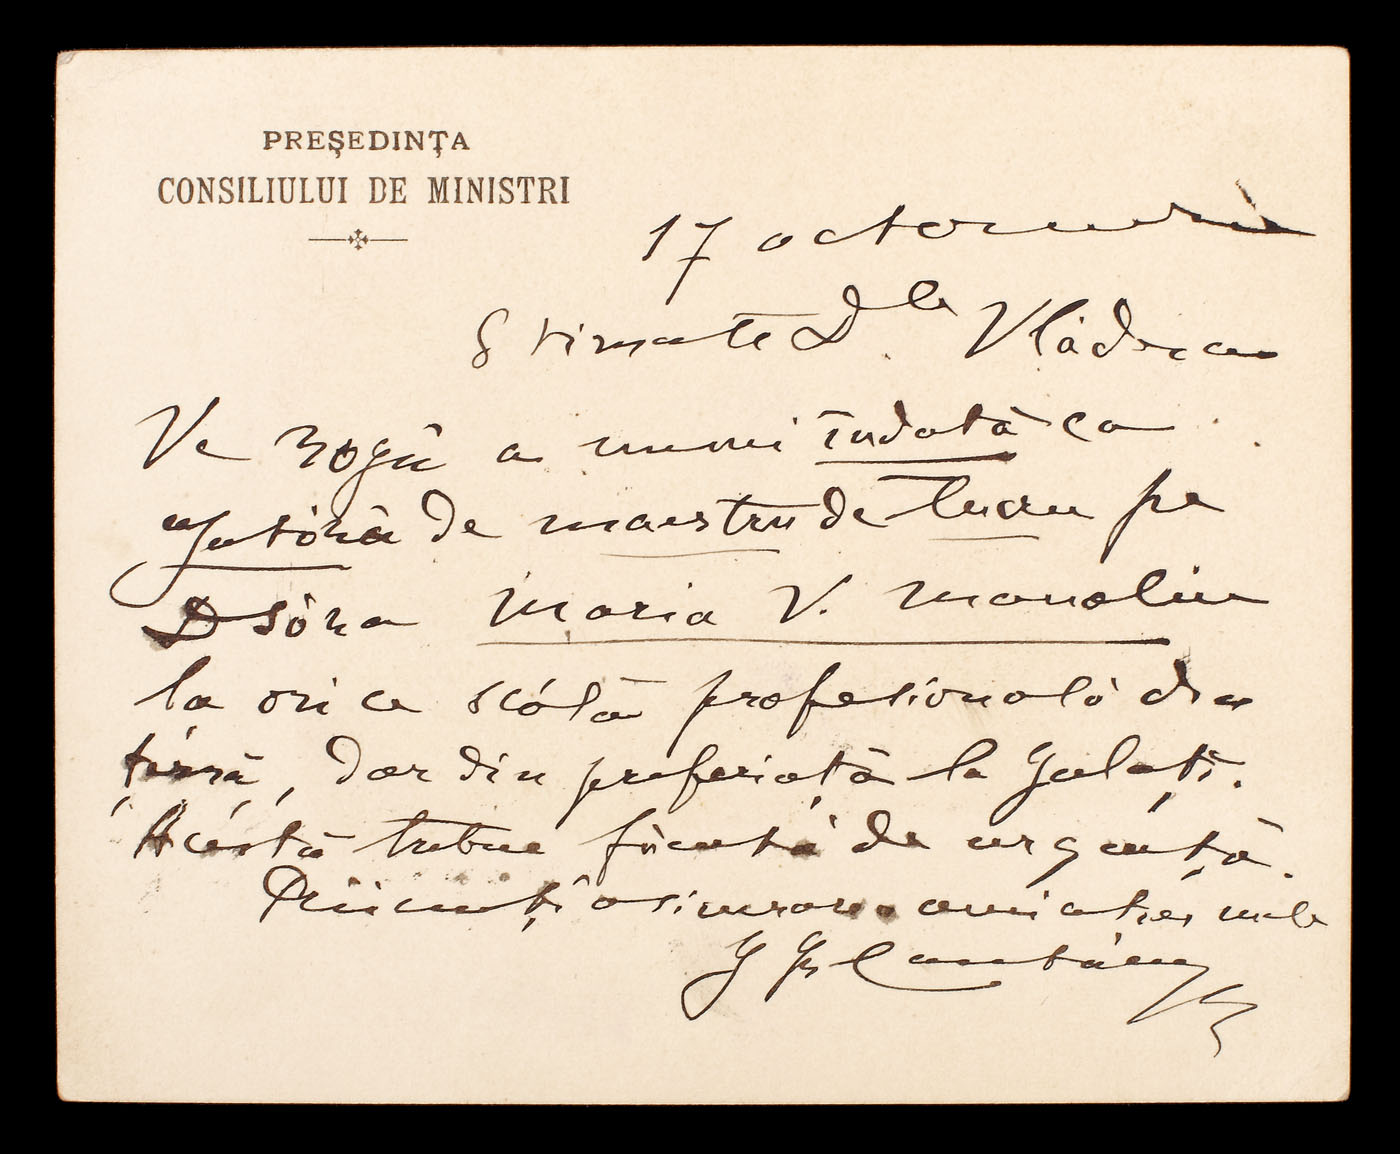 PREŞEDINŢA
CONSILIULUI DE MINISTRI
17 octomvrie
Stimate D-le Vlădescu
Ve rogŭ a numi îndată ca
de maestru de lucru pe
Dsóra Maria V. Manoliu
la orice scólă profesională din
térră, dar din preferiață la Galați.
Acéstă trebue făcută de urgență.
Priimiți asigurarea amiciției mele
G Gr Cantacuz